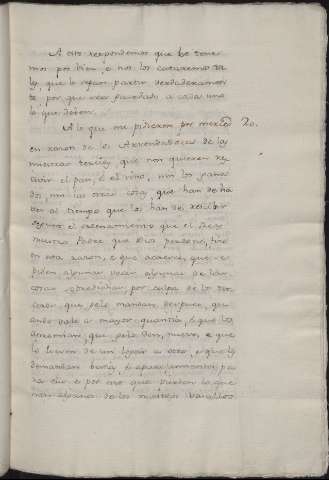 A esto respondemos que lo tene
mos por bien, e nos los cataremos ta
les, que lo sepan partir verdaderamen
te, por que sea guardado a cada uno
lo que deben.
A lo que me pidieron por merced 20.
en razon de los Arrendadores de las
nuestras tercias, que non quieren re
civir el pan, e el vino, nin los gana
dos, nin las otras cosas, que han de ha
ber al tiempo que las han de rescibir
segunt el ordenamiento que el Rey
nuestro Padre que Dios perdone, fizo
en esta razon, e que acaesce, que se
pierden algunas veces algunas de las
cosas sobredichas por culpa de los
que gelo mandan, despues,
quando vale a mayor quantia, e que les
que gelo den, nuevo, e que
lo lieven de un logar a otro, e que les
demandan
ra ello, e por esto que pierden lo que
han algunos de los nuestros vasallos